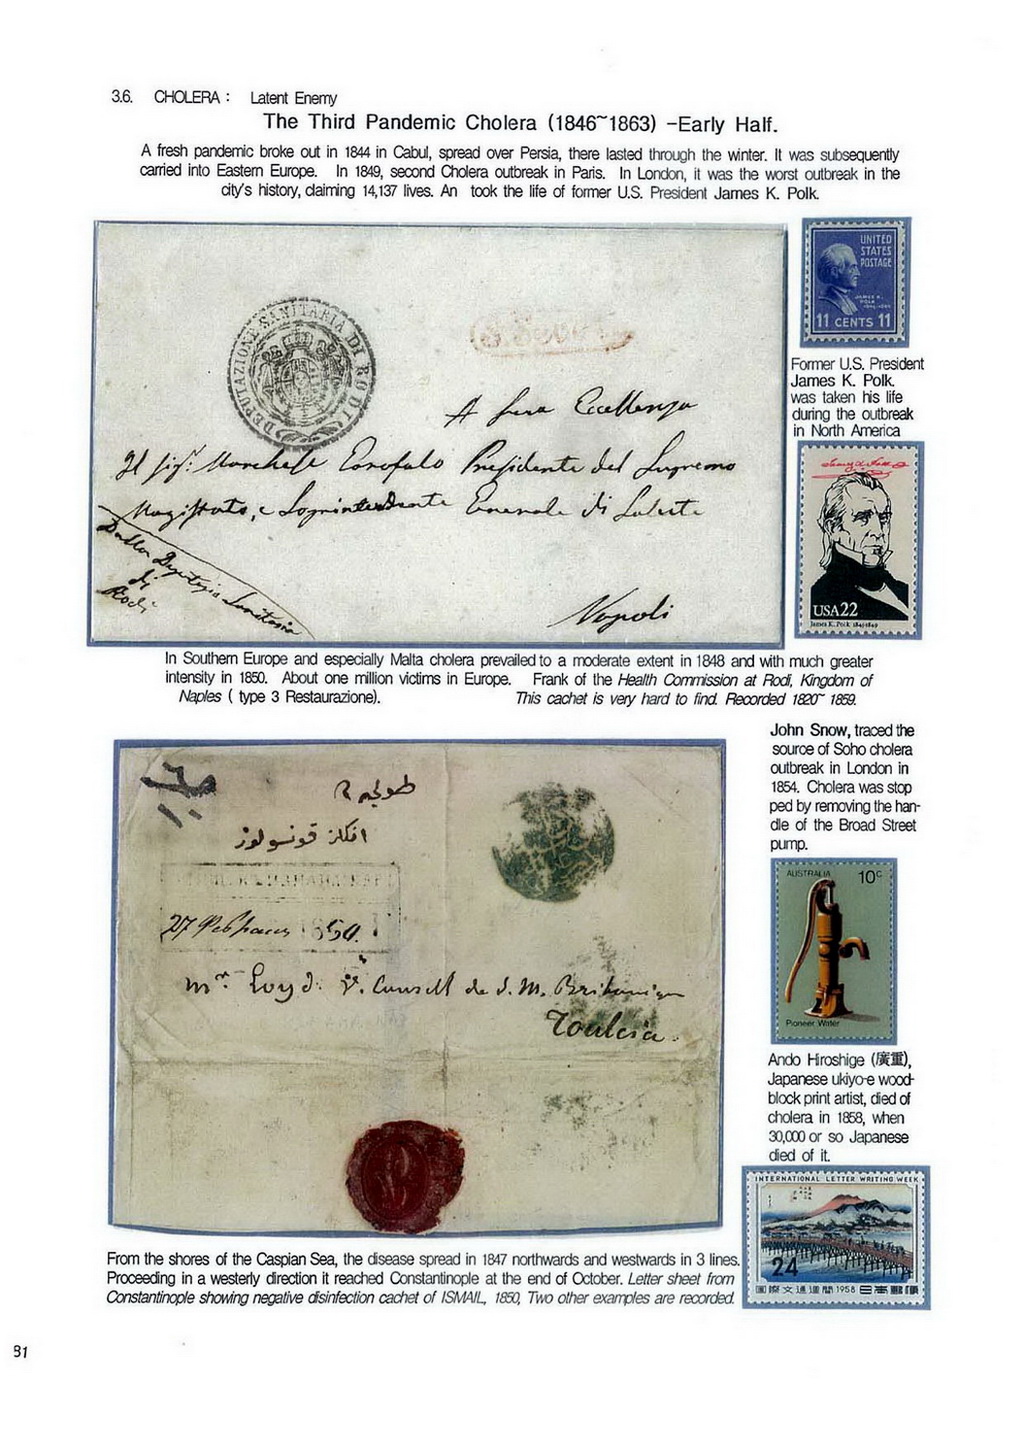 3.6. CHOLERA : Latent Enemy
The Third Pandemic Cholera (1846~1863) -Early Half.
A fresh pandemic broke out in 1844 in Cabul, spread over Persia, there lasted through the winter. It was subsequently
carried into Eastern Europe. In 1849, second Cholera outbreak in Paris. In London, it was the worst outbreak in the
city's history, claiming 14,137 lives. An took the life of former U.S. President James K. Polk.
DEPUTAZIONE SANITARIA DI RODI
A Sua Eccellenza
Il Sig: Marchese Presidente del Supremo
Magistrato, e Soprintendente Generale di Salute
Dalla Deputazio Sanitaria
di
Rodi
Napoli
UNITED
STATES
POSTAGE
JAMES K.
POLK
11 CENTS 11
Former U.S. President
James K. Polk.
was taken his life
during the outbreak
in North America
USA22
James K. Polk 1845-1849
In Southern Europe and especially Malta cholera prevailed to a moderate extent in 1848 and with much greater
intensity in 1850. About one million victims in Europe. Frank of the Health Commission at Rodi, Kingdom of
Naples ( type 3 Restaurazione). This cachet is very hard to find. Recorded 1820~ 1859.
John Snow, traced the
source of Soho cholera
outbreak in London in
1854. Cholera was stop
ped by removing the han-
dle of the Broad Street
pump.
27 1850.
Mr. Loyd V. Consell de S. M. Britanique
Toulcia.
AUSTRALIA 10c
Pioneer Water
Ando Hiroshige (廣重),
Japanese ukiyo-e wood-
block print artist, died of
cholera in 1858, when
30,000 or so Japanese
died of it.
INTERNATIONAL LETTER WRITING WEEK
24
国際文通週間 1958 日本郵便
From the shores of the Caspian Sea, the disease spread in 1847 northwards and westwards in 3 lines.
Proceeding in a westerly direction it reached Constantinople at the end of October. Letter sheet from
Constantinople showing negative disinfection cachet of ISMAIL, 1850, Two other examples are recorded.
81